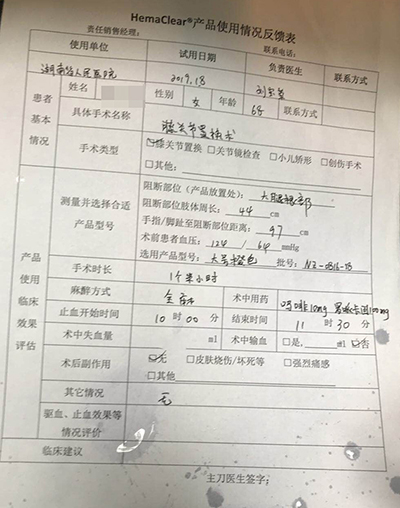 HemaClear®产品使用情况反馈表
责任销售经理: 联系电话:
使用单位 试用日期 负责医生 联系方式
湖南省人民医院 2019.18
患者基本情况
姓名 性别 女 年龄 68 联系方式
具体手术名称 膝关节置换术
手术类型 ☑膝关节置换 □关节镜检查 □小儿矫形 □创伤手术
□其他:
产品使用临床效果评估
测量并选择合适产品型号
阻断部位(产品放置处): 大腿根部
阻断部位肢体周长: 44 cm
手指/脚趾至阻断部位距离: 97 cm
术前患者血压: 124 / 64 mmHg
选用产品型号: 大号橙色 批号:
手术时长 1个半小时
麻醉方式 全麻 术中用药 吗啡10mg
止血开始时间 10 时 00 分 结束时间 11 时 30 分
术中失血量 ml 术中输血 □是, ml ☑否
术后副作用 ☑无 □皮肤烧伤/坏死等 □强烈痛感
□其他
其它情况 无
驱血、止血效果等情况评价
临床建议
主刀医生签字: